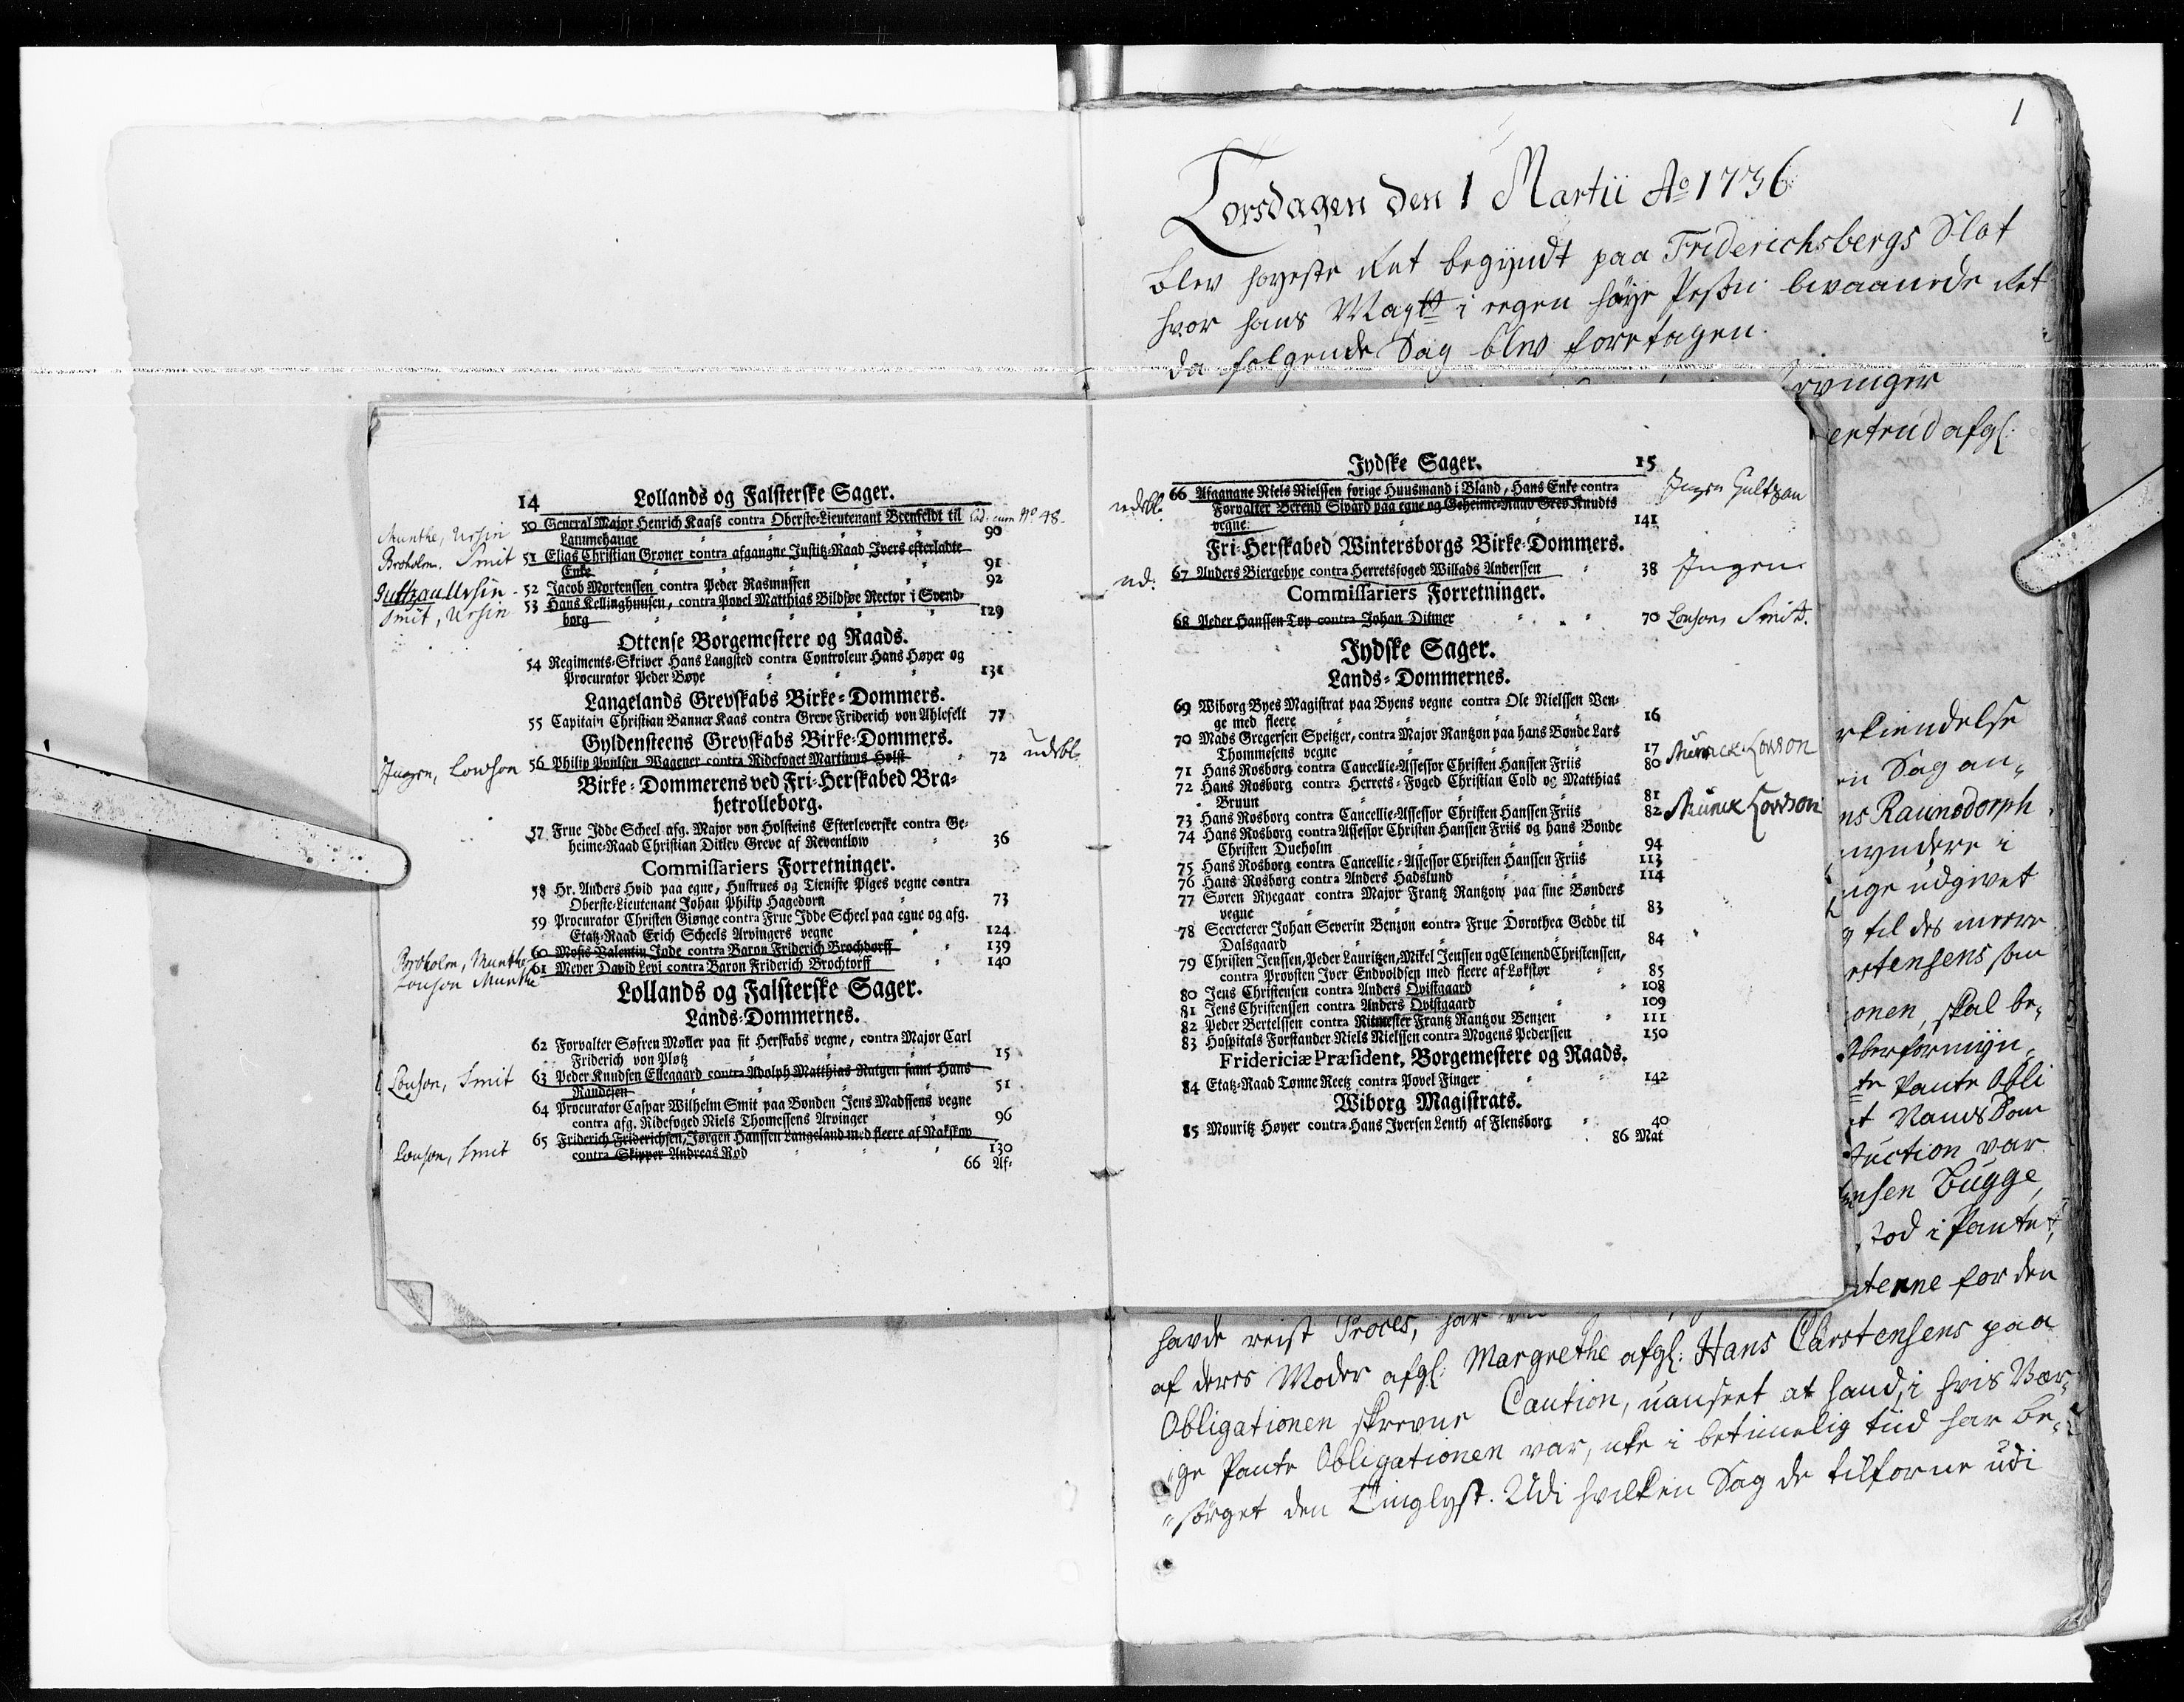 1
Torsdagen den 1 Martii Ao 1736
blev høyeste Ret begyndt paa Friderichsbergs Slot
hvor hans Maytt i egen høye Persohn bevaanede Ret
da følgende Sag blev foretagen.
rvinger
ertrud afgl:
14 Lollands og Falsterske Sager.
Munthe, Ursin 50 General Major Henrich Kaass contra Oberste-Lieutenant Beenfeldt til No 48.
Lammehauge 90
Broholm. Smit 51 Elias Christian Grøner contra afgangne Justitz-Raad Ivers efterladte
Enke 91
Gultzau Ursin - 52 Jacob Mortenssen contra Peder Rasmussen 92
Smit, Ursin 53 Hans Kellinghuusen, contra Povel Matthias Bildsøe Rector i Svend-
borg 129
Ottense Borgemestere og Raads.
54 Regiments-Skriver Hans Langsted contra Controleur Hans Høyer og
Procurator Peder Bøye 131
Langelands Grevskabs Birke-Dommers.
55 Capitain Christian Banner Kaas contra Greve Friderich von Ahlefelt 77
Gyldensteens Grevskabs Birke-Dommers.
Jngen, Lowson 56 Philip Poulsen Wagener contra Ridefoget Martinus Holst 72 udebl.
Birke-Dommerens ved Fri-Herskabed Bra-
hetrolleborg.
57 Frue Idde Scheel afg. Major von Holsteins Efterleverske contra Ge-
heime-Raad Christian Ditlev Greve af Reventlow 36
Commissariers Forretninger.
58 Hr. Anders Hvid paa egne, Hustrues og Tieniste Piges vegne contra
Oberste-Lieutenant Johan Philip Hagedorn 73
59 Procurator Christen Giønge contra Frue Idde Scheel paa egne og afg.
Etatz-Raad Erich Scheels Arvingers vegne 124
Broholm, Munthe 60 Moses Valentin Jode contra Baron Friderich Brochdorff 139
Lowson Munthe 61 Meyer David Levi contra Baron Friderich Brochtorff 140
Lollands og Falsterske Sager.
Lands-Dommernes.
62 Forvalter Søfren Møller paa sit Herskabs vegne, contra Major Carl
Friderich von Pløtz 15
Lowson, Smit 63 Peder Knudsen Ellegaard contra Adolph Matthias Rutgen samt Hans
Randesen 51
64 Procurator Caspar Wilhelm Smit paa Bonden Jens Madssens vegne
contra afg. Ridefoged Niels Thomessens Arvinger 96
Lowson, Smit 65 Friderich Friderichsen, Jørgen Hanssen Langeland med fleere af Nakskov
contra Skipper Andreas Rød 130
66 Af-
Jydske Sager. 15
udebl. 66 Afgangne Niels Nielssen forige Huusmand i Bland, Hans Enke contra Jngen Gultzau
Forvalter Berend Sivard paa egne og Geheime-Raad Grev Knudts
vegne 141
Fri-Herskabed Wintersborgs Birke-Dommers.
ud: 67 Anders Biergebye contra Herretsfoged Willads Anderssen 38 Jngen
Commissariers Forretninger.
68 Peder Hanssen Top contra Johan Ditmer 70 Lowson, Smit.
Jydske Sager.
Lands-Dommernes.
69 Wiborg Byes Magistrat paa Byens vegne contra Ole Nielssen Ven-
ge med fleere 16
70 Mads Gregersen Speitzer, contra Major Rantzon paa hans Bonde Lars
Thommesens vegne 17 Munck Lowson
71 Hans Rosborg contra Cancellie-Assessor Christen Hanssen Friis 80
72 Hans Rosborg contra Herrets-Foged Christian Cold og Matthias
Bruun 81
73 Hans Rosborg contra Cancellie-Assessor Christen Hanssen Friis 82 Munck Lowson
74 Hans Rosborg contra Assessor Christen Hanssen Friis og hans Bonde
Christen Dueholm 94
75 Hans Rosborg contra Cancellie-Assessor Christen Hanssen Friis 113
76 Hans Rosborg contra Anders Hadslund 114
77 Søren Ryegaar contra Major Frantz Rantzow paa sine Bønders
vegne 83
78 Secreterer Johan Severin Benzon contra Frue Dorothea Gedde til
Dalsgaard 84
79 Christen Jenssen, Peder Lauritzen, Mikel Jenssen og Clemend Christenssen,
contra Provsten Iver Endvoldsen med fleere af Løkstør 85
80 Jens Christensen contra Anders Qvistgaard 108
81 Jens Christenssen contra Anders Qvistgaard 109
82 Peder Bertelssen contra Ritmester Frantz Rantzou Benzen 111
83 Hospitals Forstander Niels Nielssen contra Mogens Pederssen 150
Fridericiæ Præsident, Borgemestere og Raads.
84 Etatz-Raad Tønne Reetz contra Povel Finger 142
Wiborg Magistrats.
85 Mouritz Høyer contra Hans Iversen Lenth af Flensborg 40
86 Mat
rkiendelse
en Sag an-
ns Raunsdorph
myndere i
nge udgivet
g til des meere
rstensens som
onen, skal be-
Oberformyn-
te Pante Obli
t Vands Dom
Auction var
ensen Bugge,
stod i Pantet,
terne for den
havde reist Proces, har
af deres Moder afgl: Margrethe afgl: Hans Carstensens paa
Obligationen skrevne Caution, uanseet at hand, i hvis Vær-
ge Pante Obligationen var, icke i betimelig tiid har be-
sørget den Tinglyst. Udi hvilken Sag de tilforne udi